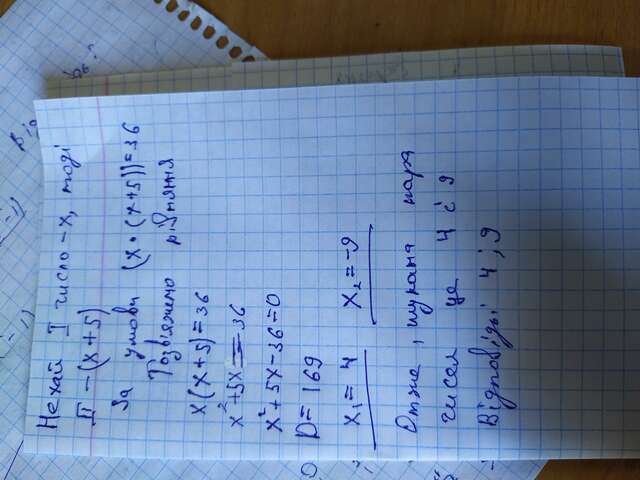 Нехай I число - x, тоді
II - (x+5)
За умови (x•(x+5))=36
Розв'яжемо рівняння
x(x+5)=36
x²+5x=36
x²+5x-36=0
D=169
x₁=4 x₂=-9
Отже, шукана пара
чисел це 4 і 9
Відповідь: 4 ; 9